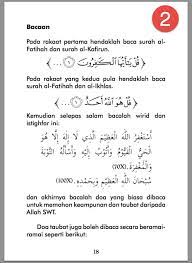 2
Bacaan
Pada rakaat pertama hendaklah baca surah al-
Fatihah dan surah al-Kafirun.
﴿ قُلْ يَٰٓأَيُّهَا ٱلْكَٰفِرُونَ ۝١ ... ﴾
Pada rakaat yang kedua pula hendaklah baca
surah al-Fatihah dan al-Ikhlas.
﴿ قُلْ هُوَ ٱللَّهُ أَحَدٌ ۝١ ... ﴾
Kemudian selepas salam bacalah wirid dan
istighfar ini:
أَسْتَغْفِرُ اللهَ الْعَظِيْمَ الَّذِي لَا إِلٰهَ إِلَّا هُوَ
الْحَيُّ الْقَيُّوْمُ وَأَتُوْبُ إِلَيْهِ وَأَسْأَلُهُ التَّوْبَةَ
وَالْمَغْفِرَةَ.
سُبْحَانَ اللهِ الْعَظِيْمِ وَبِحَمْدِهِ.
dan akhirnya bacalah doa yang biasa dibaca
untuk memohon keampunan dan taubat daripada
Allah SWT.
Doa taubat juga boleh dibaca secara beramai-
ramai seperti berikut:
18